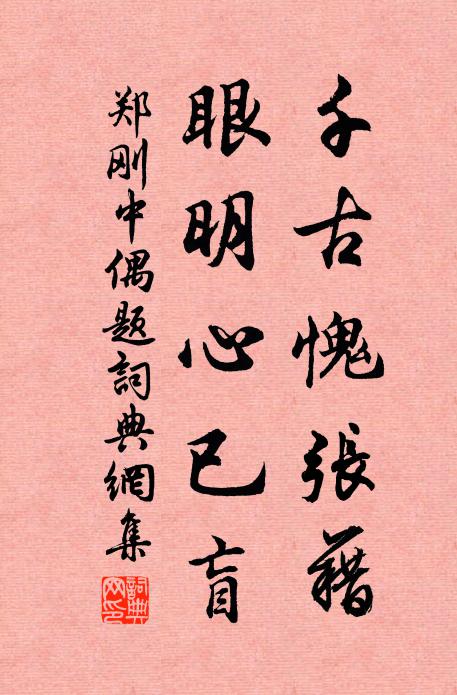 千古愧張籍
眼明心已盲
郑刚中偶题詞典網集
詞典網印